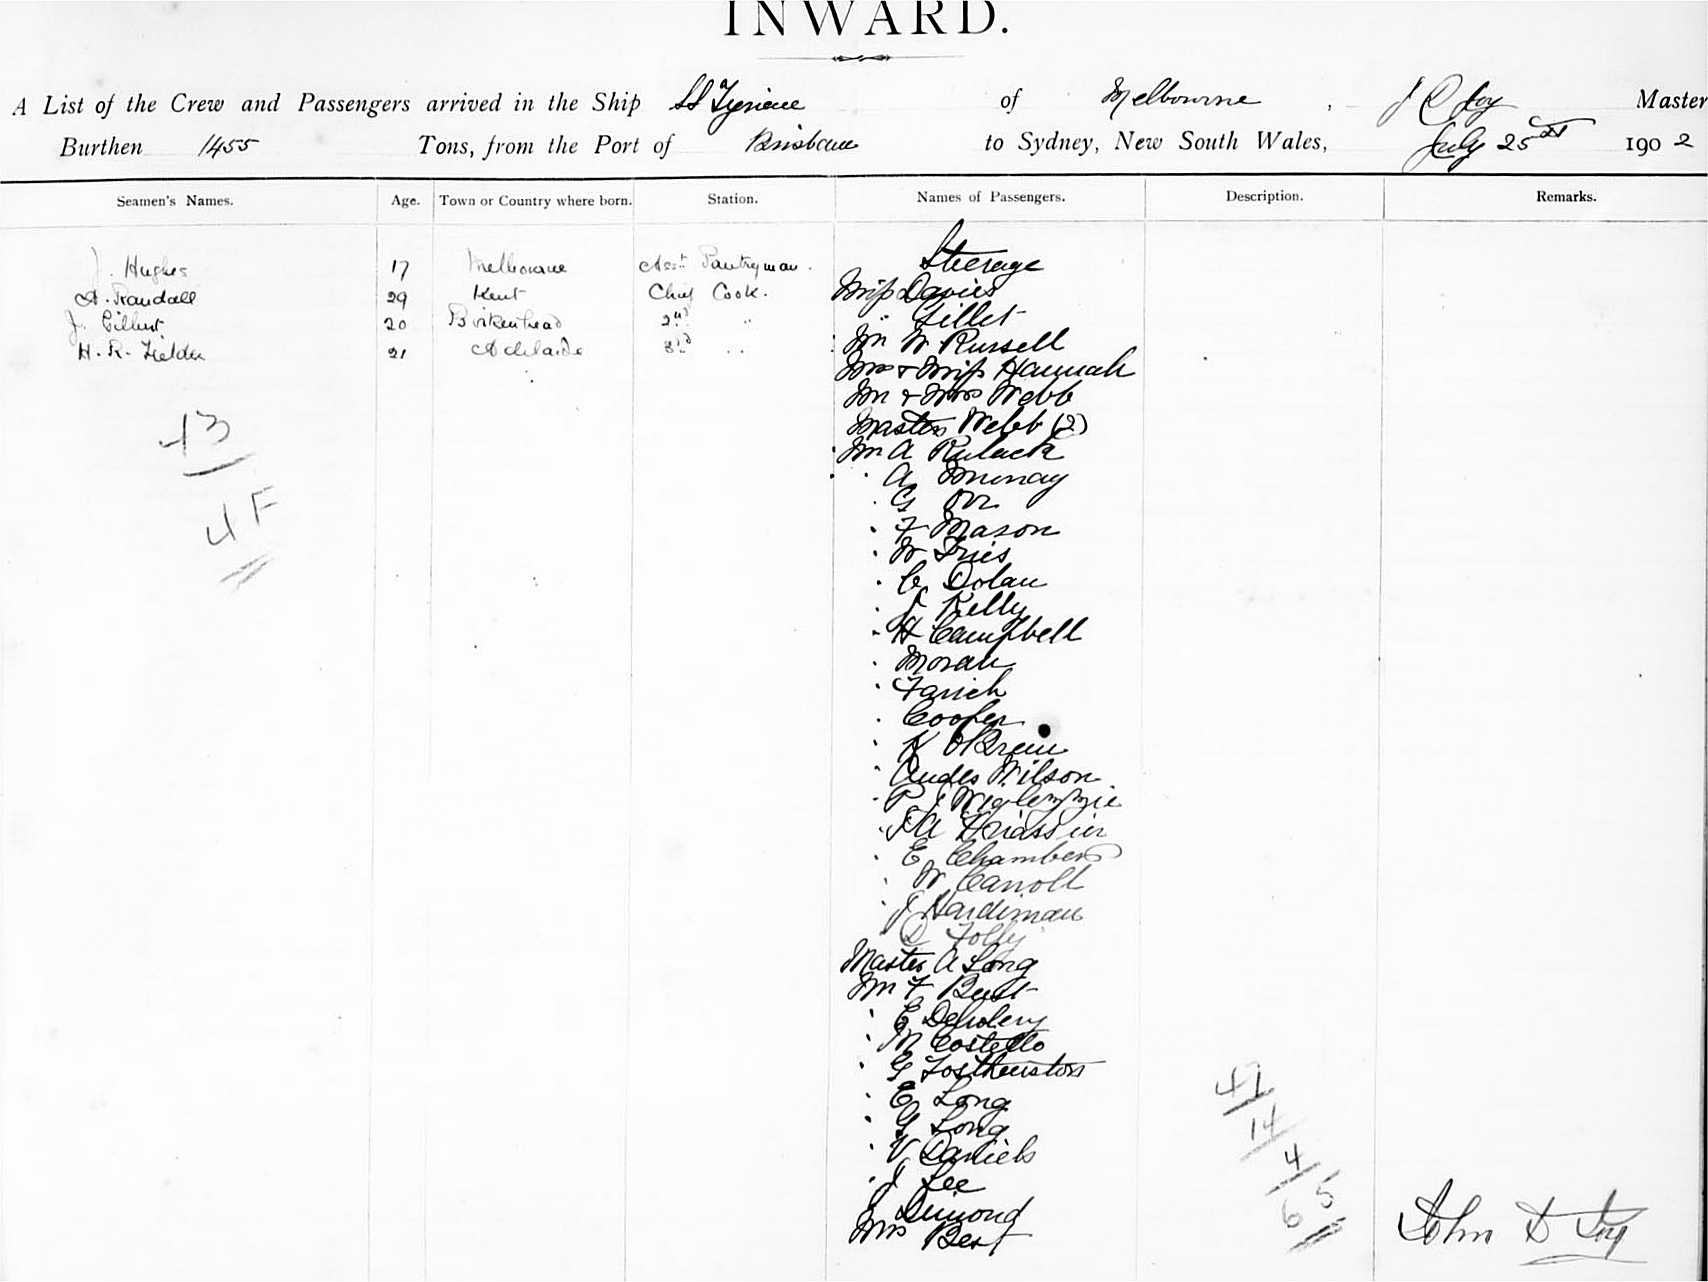 INWARD.
A List of the Crew and Passengers arrived in the Ship SS Tyrian of Melbourne, Master
Burthen 1455 Tons, from the Port of Brisbane to Sydney, New South Wales, July 25th 1902
Seamen's Names. Age. Town or Country where born. Station. Names of Passengers. Description. Remarks.
Steerage
J. Hughes 17 Melbourne Asst Pantryman.
A. Randall 29 Kent Chief Cook.
J. Gilbert 20 Birkenhead 2nd "
H. R. Fielder 21 Adelaide 3rd "
Miss Davies
" Gillet
Mr W Russell
Mrs & Miss Hannah
Mr & Mrs Webb
Masters Webb (2)
Mr A
" A Murray
" G Orr
" F Mason
" W Fries
" C Dolan
" J Kelly
" H Campbell
" Moran
"
" Cooper
" O'Brein
" Andes Wilson
" P J
" J A
" E Chambers
" W Carroll
" J Hardiman
D
Master A Long
Mr F
" E
" M Costello
" G
" E Long
" G Long
" V Daniels
" J Lee
J Dimond
Mrs Best
43
4 F
47
14
4
65
John